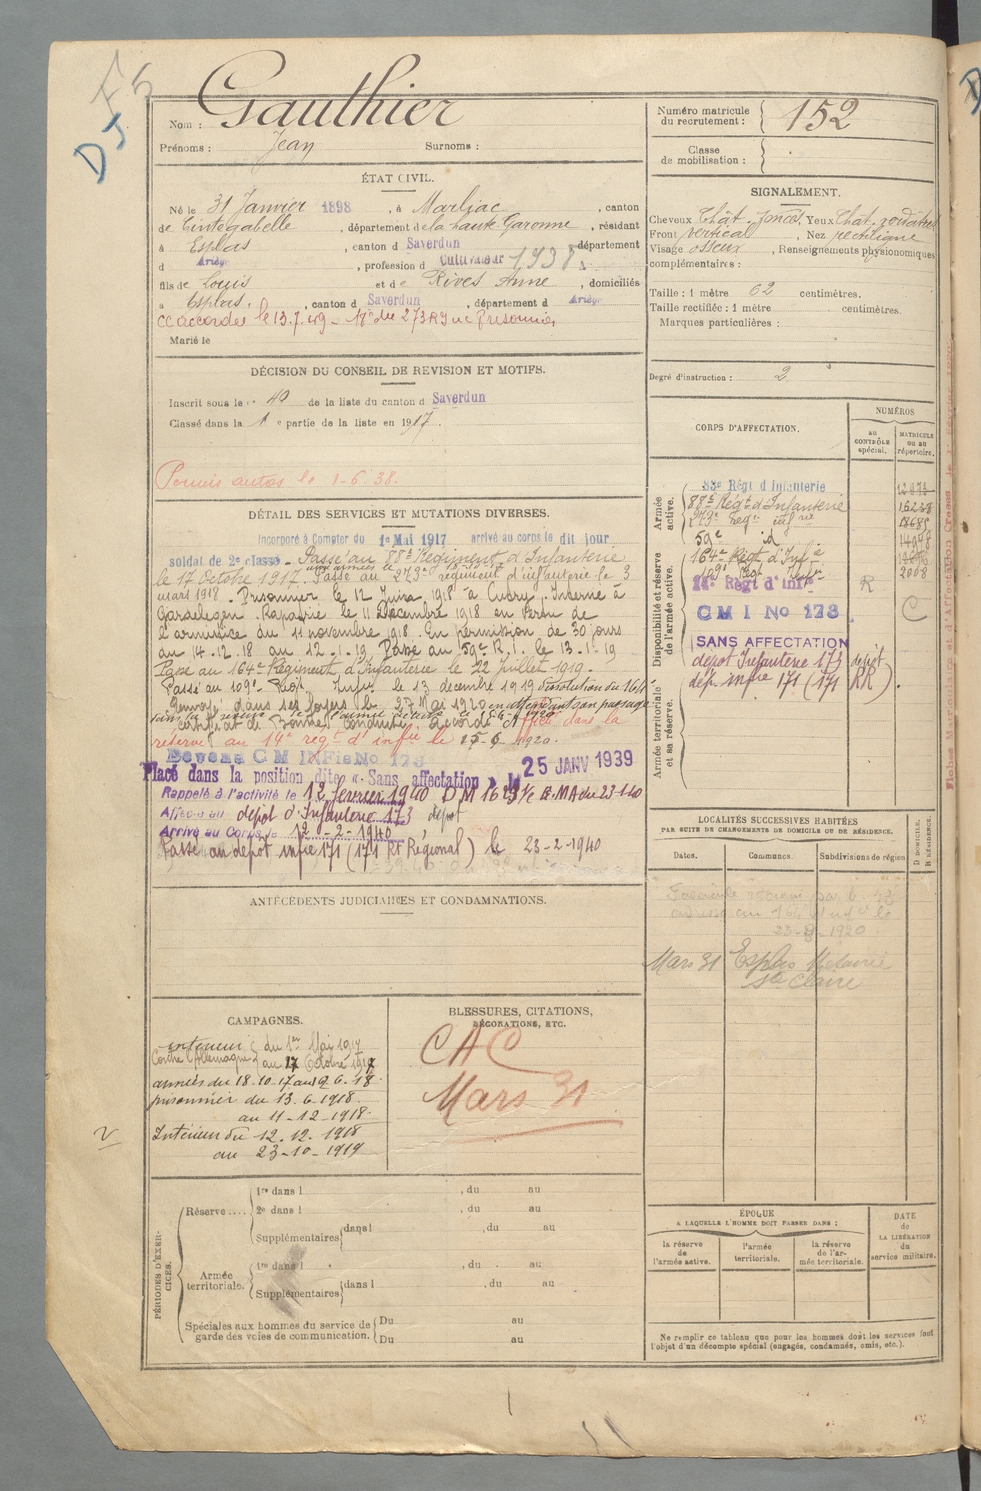 F5
DJ
Nom : Gauthier
Prénoms : Jean Surnoms :
ÉTAT CIVIL.
Né le 31 Janvier 1898, à Marliac, canton
de Cintegabelle, département de la haute Garonne, résidant
à Esplas, canton d Saverdun département
d Ariège, profession d Cultivateur 1938
fils de Louis et de Rives Anne, domiciliés
à Esplas, canton d Saverdun, département d Ariège
CC accordée le 13.7.49 - 17e du 273 RI
Marié le
DÉCISION DU CONSEIL DE REVISION ET MOTIFS.
Inscrit sous le no 40 de la liste du canton d Saverdun
Classé dans la 1e partie de la liste en 1917.
Permis autos le 1-6-38.
DÉTAIL DES SERVICES ET MUTATIONS DIVERSES.
Incorporé à Compter du 1er Mai 1917 arrivé au corps le dit jour
soldat de 2e classe - Passé au 88e Régiment d'Infanterie
le 17 Octobre 1917. Passé au 273e régiment d'infanterie le 3
mars 1918. Prisonnier le 12 Juin 1918 à Cutry. Interné à
Gardelegen. Rapatrié le 11 décembre 1918 en vertu de
l'armistice du 11 novembre 1918. En permission de 30 jours
du 14-12-18 au 12-1-19. Passé au 59e R.I. le 13-1-19
Passé au 164e Régiment d'Infanterie le 22 Juillet 1919.
Passé au 109e Régt Infie le 13 décembre 1919 dissolution du 164e
Renvoyé dans ses foyers le 27 Mai 1920 en attendant son passage
dans la réserve de l'armée active le 15-6-1920
Certificat de Bonne Conduite Accordé. Affecté dans la
réserve au 14e régt d'infie le 15-6-1920.
CM INFie No 173
Placé dans la position dite « Sans affectation » le 25 JANV 1939
Rappelé à l'activité le 12 février 1940 DM
Affecté au dépôt d'Infanterie 173 dépôt
Arrivé au Corps le 12-2-1940
Passé au dépôt infie 171 (171 Rt Régional) le 23-2-1940
ANTÉCÉDENTS JUDICIAIRES ET CONDAMNATIONS.
CAMPAGNES.
Intérieur du 1er Mai 1917
Contre l'Allemagne au 17 Octobre 1917
armées du 18.10.17 au 12.6.18
prisonnier du 13.6.1918
au 11-12-1918
Intérieur du 12.12.1918
au 23-10-1919
BLESSURES, CITATIONS,
DÉCORATIONS, ETC.
CAC
Mars 31
PÉRIODES D'EXERCICES.
Réserve.... 1re dans l , du au
2e dans l , du au
Supplémentaires dans l , du au
Armée territoriale. 1re dans l , du au
Supplémentaires dans l , du au
Spéciales aux hommes du service de garde des voies de communication. Du au
Du au
Numéro matricule du recrutement : 152
Classe de mobilisation :
SIGNALEMENT.
Cheveux Chât. foncé, Yeux
Front vertical, Nez rectiligne
Visage osseux, Renseignements physionomiques
complémentaires :
Taille : 1 mètre 62 centimètres.
Taille rectifiée : 1 mètre centimètres.
Marques particulières :
Degré d'instruction : 2
CORPS D'AFFECTATION.
NUMÉROS
AU CONTRÔLE spécial.
MATRICULE ou au répertoire.
Armée active.
Régt d'Infanterie
88e Régt d'Infanterie 16238
273e Régt infrie
59e id
Disponibilité et réserve de l'armée active.
164e Régt d'Infie
109e Régt Infie 2008
14e Régt d'Infie R
CMI No 173 C
SANS AFFECTATION
dépôt Infanterie 173 dépôt
dép. infie 171 (171 RR)
Armée territoriale et sa réserve.
LOCALITÉS SUCCESSIVES HABITÉES
PAR SUITE DE CHANGEMENTS DE DOMICILE OU DE RÉSIDENCE.
Dates. Communes. Subdivisions de région D DOMICILE. R RÉSIDENCE.
23-8-1920
Mars 31 Esplas Métairie
Ste Claire
ÉPOQUE
A LAQUELLE L'HOMME DOIT PASSER DANS :
la réserve de l'armée active.
l'armée territoriale.
la réserve de l'armée territoriale.
DATE de LA LIBÉRATION du service militaire.
Ne remplir ce tableau que pour les hommes dont les services font
l'objet d'un décompte spécial (engagés, condamnés, omis, etc.).